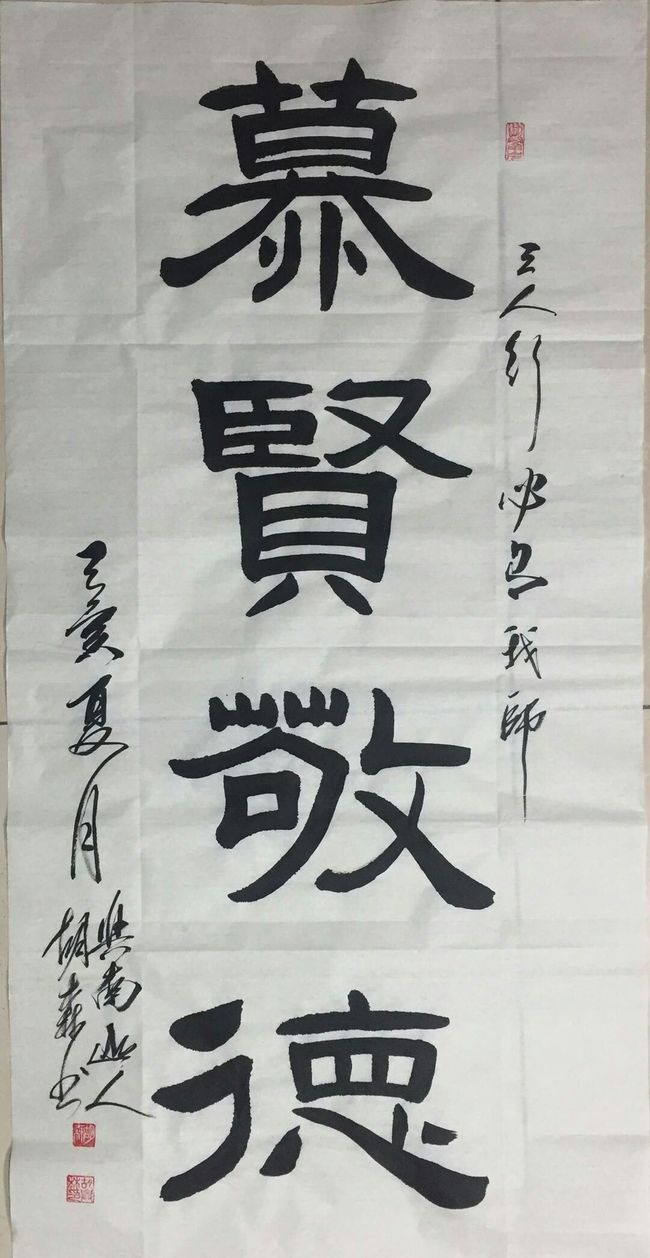 三人行必有我師
慕賢敬德
己亥夏月
興南山人
胡森书